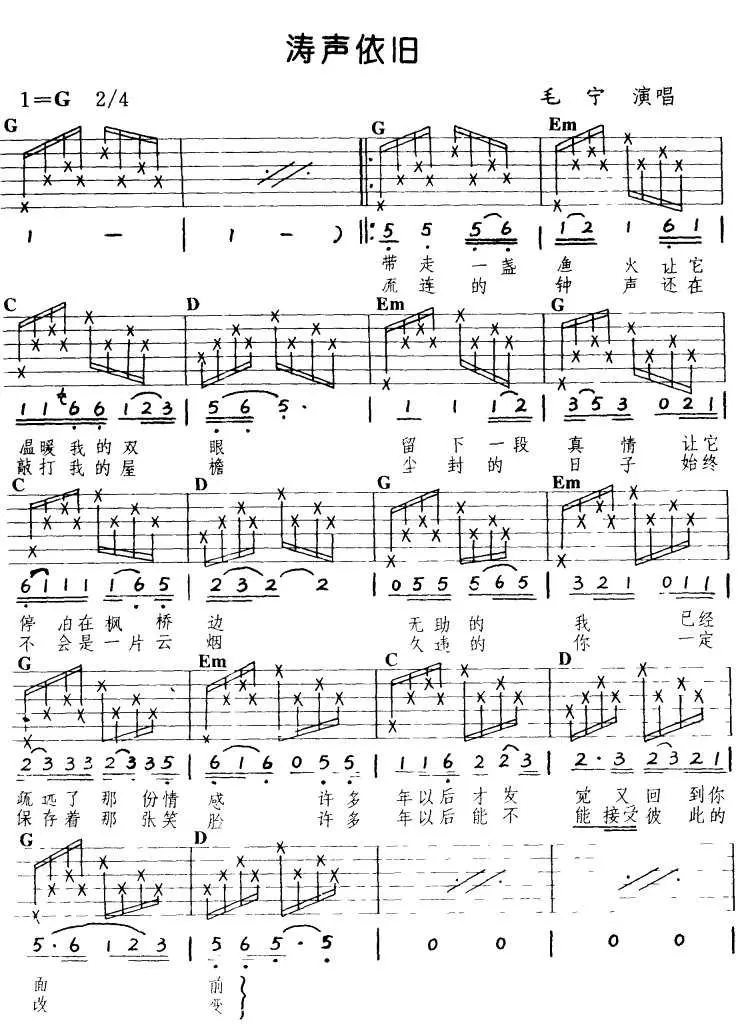 涛声依旧
1=G 2/4
毛 宁 演唱
G G Em
1 - | 1 - ) |: 5 5 5 6 | 1 2 1 6 1
带 走 一 盏 渔 火 让 它
流 连 的 钟 声 还 在
C D Em G
1 1 6 6 1 2 3 | 5 6 5 · | 1 1 1 2 | 3 5 3 0 2 1
温 暖 我 的 双 眼 留 下 一 段 真 情 让 它
敲 打 我 的 屋 檐 尘 封 的 日 子 始 终
C D G Em
6 1 1 1 1 6 5 | 2 3 2 2 | 0 5 5 5 6 5 | 3 2 1 0 1 1
停 泊 在 枫 桥 边 无 助 的 我 已 经
不 会 是 一 片 云 烟 久 违 的 你 一 定
G Em C D
2 3 3 3 3 2 3 3 5 | 6 1 6 0 5 5 | 1 1 6 2 2 3 | 2 · 3 2 3 2 1
疏 远 了 那 份 情 感 许 多 年 以 后 才 发 觉 又 回 到 你
保 存 着 那 张 笑 脸 许 多 年 以 后 能 不 能 接 受 彼 此 的
G D
5 · 6 1 2 3 | 5 6 5 · 5 | 0 0 | 0 0
面 前
改 变